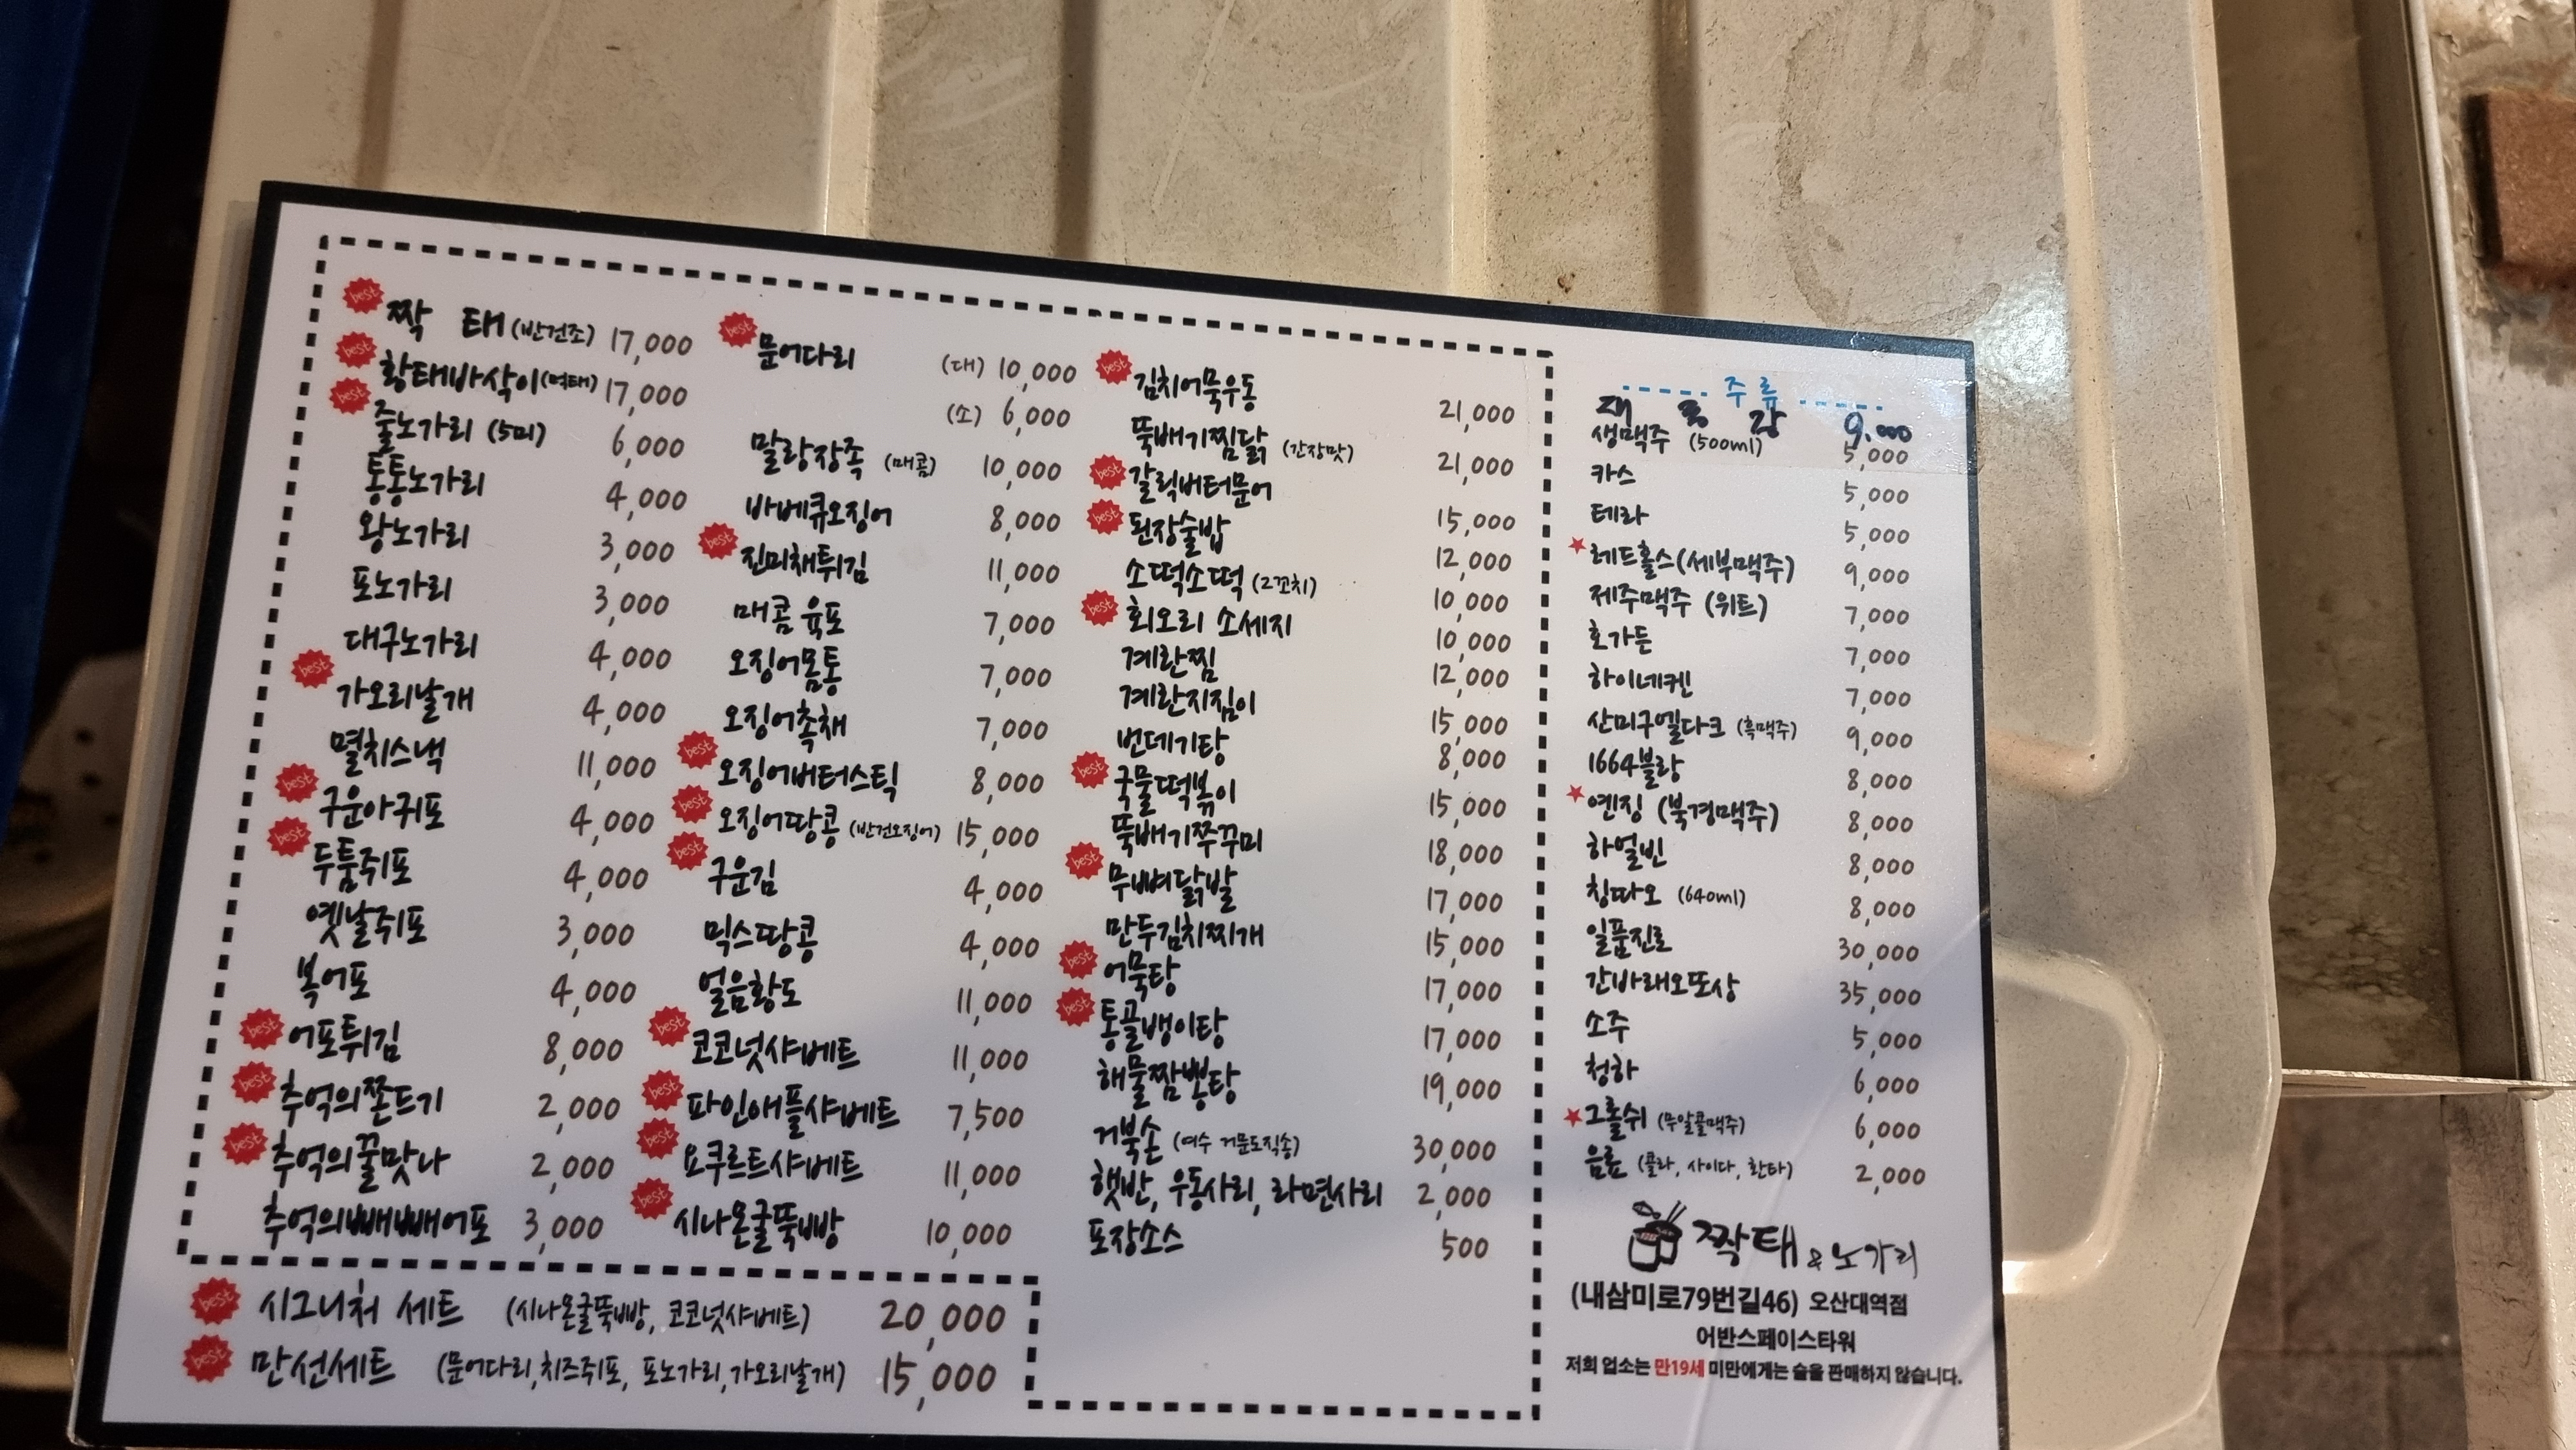 best 짝 태 (반건조) 17,000
best 황태바삭이(먹태) 17,000
best 줄노가리 (5미) 6,000
통통노가리 4,000
왕노가리 3,000
포노가리 3,000
대구노가리 4,000
best 가오리날개 4,000
멸치스낵 11,000
best 구운아귀포 4,000
best 두툼쥐포 4,000
옛날쥐포 3,000
복어포 4,000
best 어포튀김 8,000
best 추억의쫀드기 2,000
best 추억의꿀맛나 2,000
추억의빼빼어포 3,000
best 문어다리 (대) 10,000
(소) 6,000
말랑장족 (매콤) 10,000
바베큐오징어 8,000
best 진미채튀김 11,000
매콤 육포 7,000
오징어몸통 7,000
오징어촉채 7,000
best 오징어버터스틱 8,000
best 오징어땅콩 (반건오징어) 15,000
best 구운김 4,000
믹스땅콩 4,000
얼음황도 11,000
best 코코넛샤베트 11,000
best 파인애플샤베트 7,500
best 요쿠르트샤베트 11,000
best 시나몬굴뚝빵 10,000
best 시그니처 세트 (시나몬굴뚝빵, 코코넛샤베트) 20,000
best 만선세트 (문어다리,치즈쥐포, 포노가리,가오리날개) 15,000
best 김치어묵우동 21,000
뚝배기찜닭 (간장맛) 21,000
best 갈릭버터문어 15,000
best 된장술밥 12,000
소떡소떡 (2꼬치) 10,000
best 회오리 소세지 10,000
계란찜 12,000
계란지짐이 15,000
번데기탕 8,000
best 국물떡볶이 15,000
뚝배기쭈꾸미 18,000
best 무뼈닭발 17,000
만두김치찌개 15,000
best 어묵탕 17,000
best 통골뱅이탕 17,000
해물짬뽕탕 19,000
거북손 (여수 거문도직송) 30,000
햇반, 우동사리, 라면사리 2,000
포장소스 500
주 류
9.000
생맥주 (500ml) 5,000
카스 5,000
테라 5,000
레드홀스(세부맥주) 9,000
제주맥주 (위트) 7,000
호가든 7,000
하이네켄 7,000
산미구엘다크 (흑맥주) 9,000
1664블랑 8,000
옌징 (북경맥주) 8,000
하얼빈 8,000
칭따오 (640ml) 8,000
일품진로 30,000
간바레오또상 35,000
소주 5,000
청하 6,000
그롤쉬 (무알콜맥주) 6,000
음료 (콜라, 사이다, 환타) 2,000
짝태 & 노가리
(내삼미로79번길46) 오산대역점
어반스페이스타워
저희 업소는 만19세 미만에게는 술을 판매하지 않습니다.